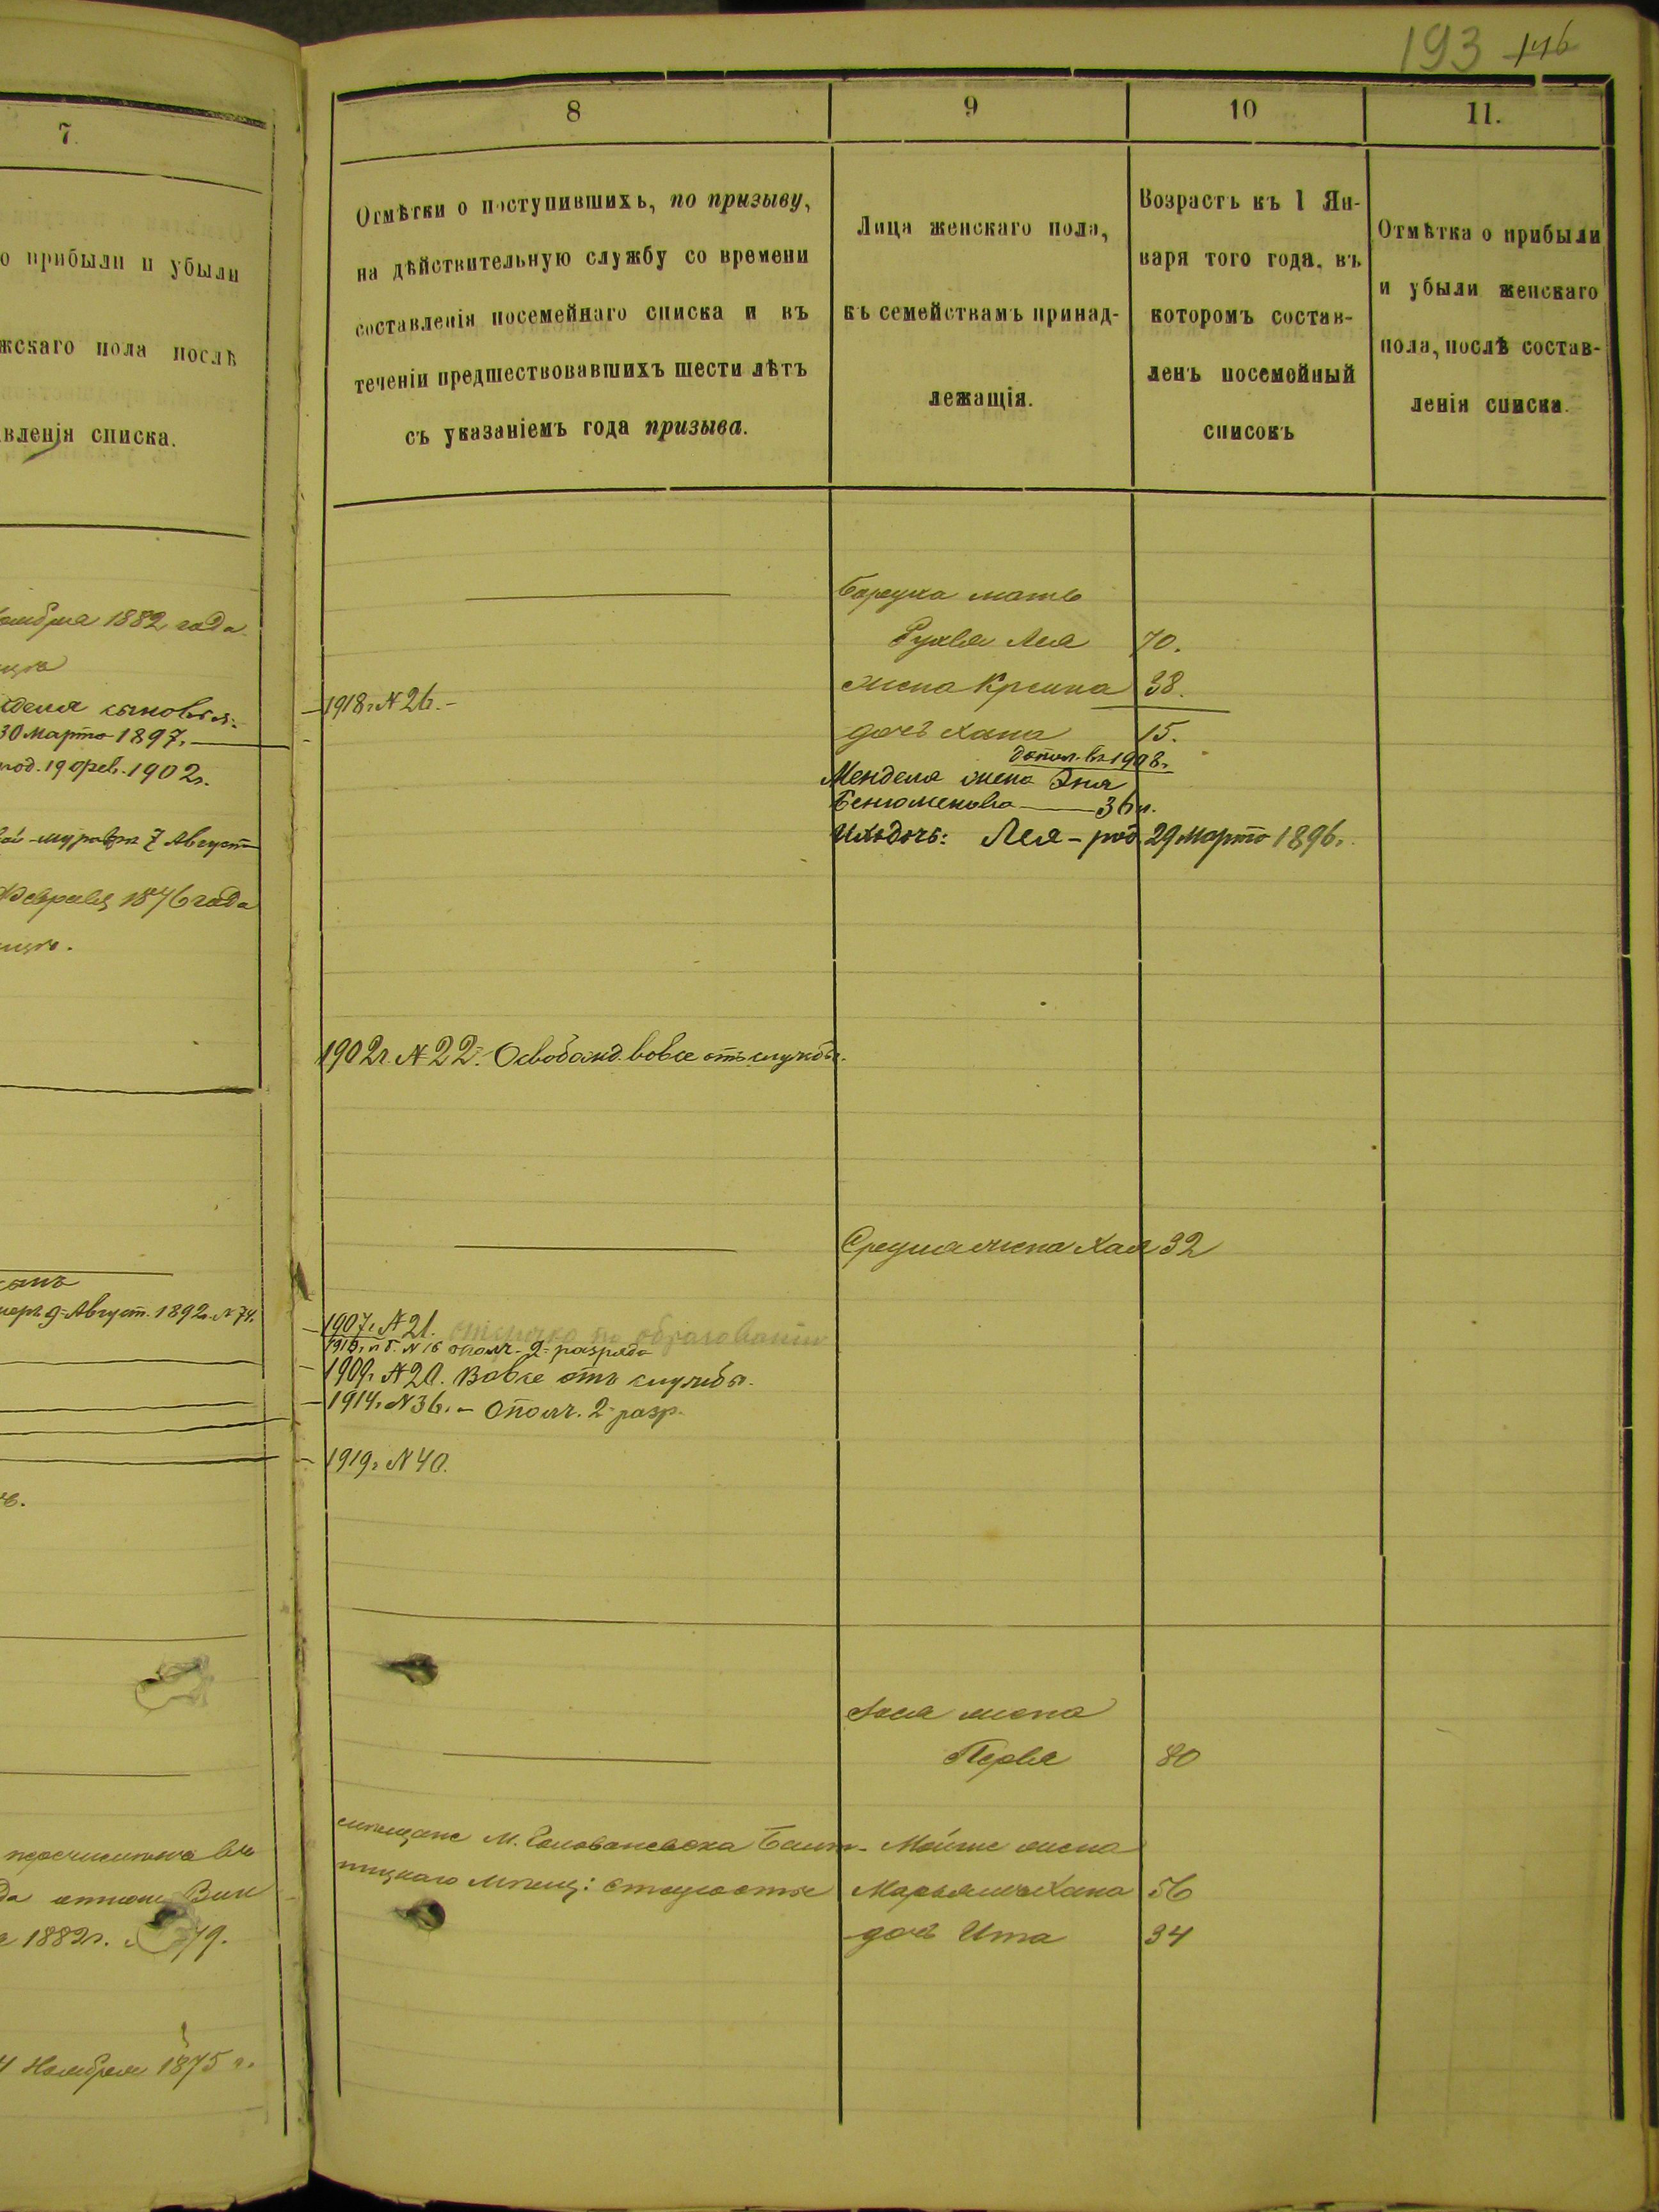 193 146
7.
о прибыли и убыли
жскаго пола послѣ
вленія списка.
1882 года
30 марта 1897.
род. 19 фев. 1902г.
7 Август
Февраля 1876 года
Август. 1892г. № 74.
1882г. 79.
Ноября 1875 г.
8
9
10
11.
Отмѣтки о поступившихъ, по призыву,
на дѣйствительную службу со времени
составленія посемейнаго списка и въ
теченіи предшествовавшихъ шести лѣтъ
съ указаніемъ года призыва.
Лица женскаго пола,
къ семействамъ принад-
лежащія.
Возрастъ къ 1 Ян-
варя того года, въ
которомъ состав-
ленъ посемейный
списокъ
Отмѣтка о прибыли
и убыли женскаго
пола, послѣ состав-
ленія списка.
Боруха мать
Рухля Лея 70.
жена Креина 38.
1918г. № 26.
дочь Хана 15.
допол. въ 1908г.
Менделя жена Эня
Бенюменова 36 л.
Ихъ дочь: Лея - род. 29 марта 1896г.
1902г. № 22. Освобожд. вовсе отъ службы.
Сруля жена Хая 32
1907г. № 21. отсрочка по образованію
ополч. 2 разряда
1909г. № 20. Вовсе отъ службы.
1914г. № 36. - Ополч. 2 разр.
1919г. № 40.
жена
Перля 80
мѣщане М. Голованевска Балт- Мойше жена
Марьямъ Хана 56
дочь Ита 34